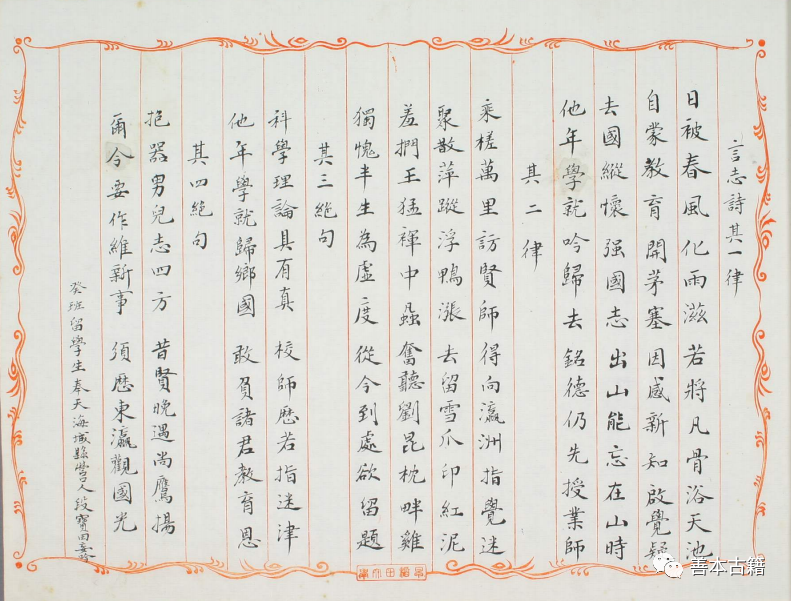 言志詩其一律
日被春風化雨滋 若將凡骨浴天池
自蒙教育開茅塞 因感新知啟覺疑
去國縱懷强國志 出山能忘在山時
他年學就吟歸去 銘德仍先授業師
其二律
乘槎萬里訪賢師 得向瀛洲指覺迷
聚散萍蹤浮鴨漲 去留雪爪印紅泥
羞捫王猛褌中蝨 奮聽劉昆枕畔雞
獨愧半生為虛度 從今到處欲留題
其三絕句
科學理論具有真 校師歷若指迷津
他年學就歸鄉國 敢負諸君教育恩
其四絕句
抱器男兒志四方 昔賢晚遇尚鷹揚
爾今要作維新事 須歷東瀛觀國光
癸班留學生奉天海城縣營人段寶田
善本古籍